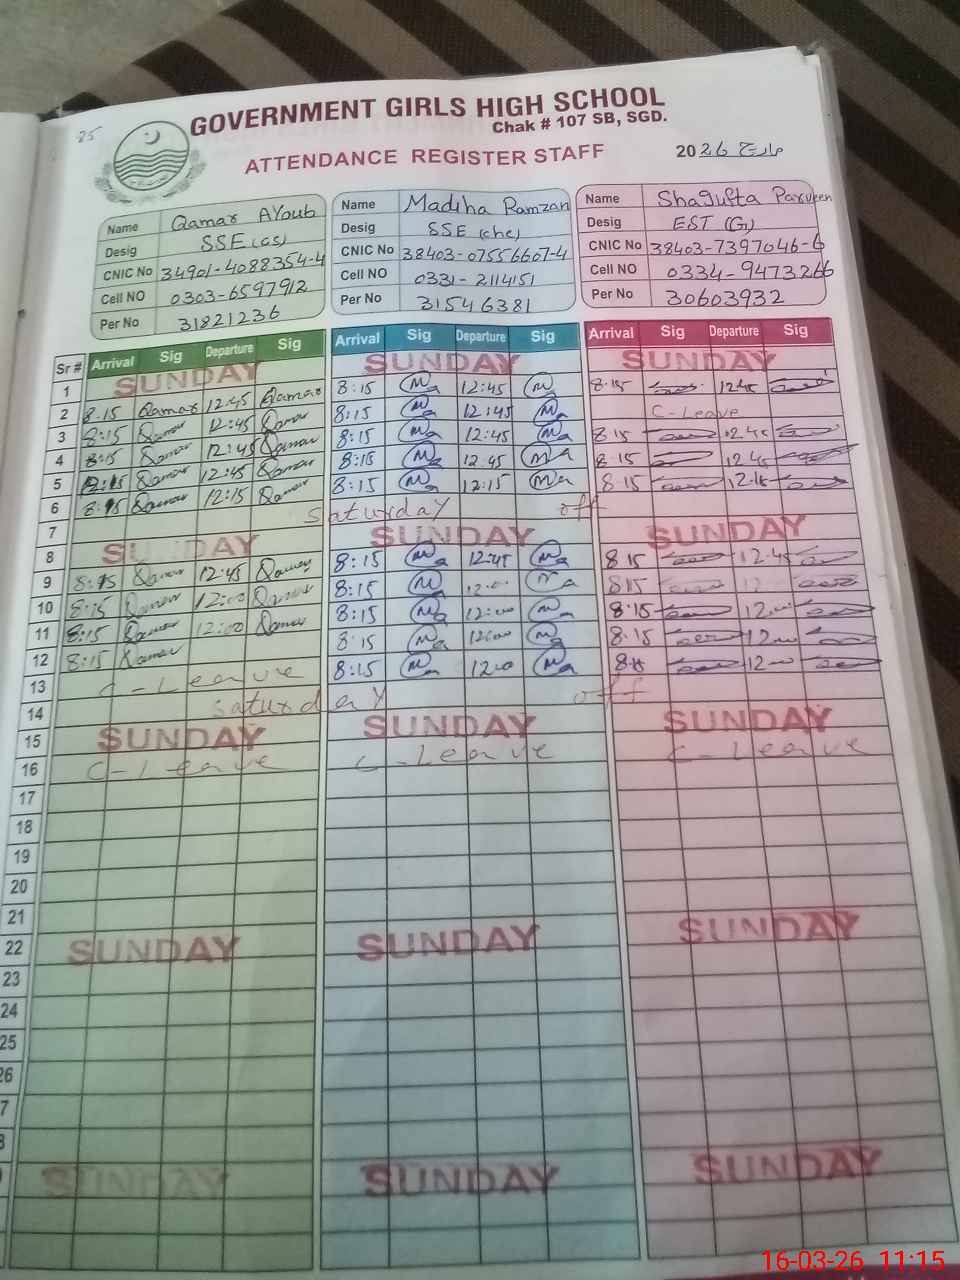 85
GOVERNMENT GIRLS HIGH SCHOOL
Chak # 107 SB, SGD.
ATTENDANCE REGISTER STAFF
2026 مارچ
Name Qamar AYoub
Desig SSE (CS)
CNIC No 34901-4088354-4
Cell NO 0303-6597912
Per No 31821236
Name Madiha Ramzan
Desig SSE (che)
CNIC No 38403-07556607-4
Cell NO 0331-2114151
Per No 31546381
Name Shagufta Parveen
Desig EST (G)
CNIC No 38403-7397046-6
Cell NO 0334-9473266
Per No 30603932
Sr # Arrival Sig Departure Sig Arrival Sig Departure Sig Arrival Sig Departure Sig
1 SUNDAY SUNDAY SUNDAY
2 8.15 Qamar 12:45 Qamar 8:15 12:45 8.15 12.45
3 8:15 Qamar 12:45 Qamar 8:15 12:45 C-Leave
4 8:15 Qamar 12:45 Qamar 8:15 12:45 8.15 12.45
5 Qamar 12:45 Qamar 8:15 12.45 8.15 12.45
6 8.15 Qamar 12:15 Qamar 8:15 12:15 8.15 12.15
7 Saturday off
8 SUNDAY SUNDAY SUNDAY
9 8:15 Qamar 12:45 Qamar 8:15 12:45 8.15 12.45
10 8:15 Qamar 12:00 Qamar 8:15 12:00 8.15 12
11 8:15 Qamar 12:00 Qamar 8:15 12:00 8.15 12.00
12 8:15 Qamar 8:15 12:00 8.15 12.00
13 C-Leave 8:15 12.00 12.00
14 Saturday off
15 SUNDAY SUNDAY SUNDAY
16 C-Leave C-Leave C-Leave
17
18
19
20
21
22 SUNDAY SUNDAY SUNDAY
23
24
25
26
7
8
SUNDAY SUNDAY SUNDAY
16-03-26 11:15